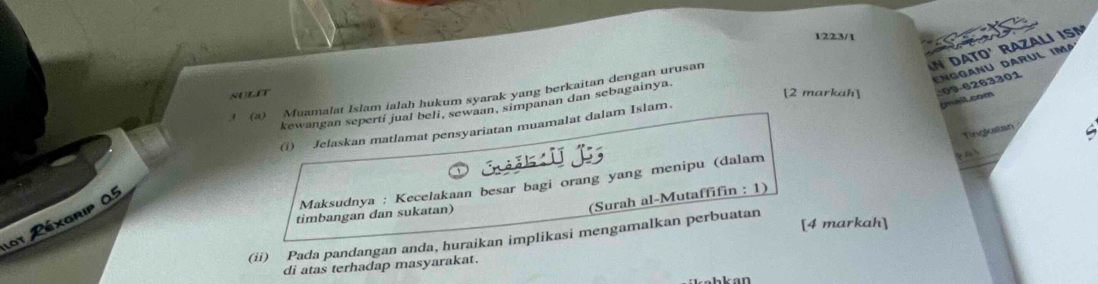 1223/1
SULIT
3 (a) Muamalat Islam ialah hukum syarak yang berkaitan dengan urusan
kewangan seperti jual beli, sewaan, simpanan dan sebagainya.
(i) Jelaskan matlamat pensyariatan muamalat dalam Islam.
[2 markah]
وَيْلٌ لِّلْمُطَفِّفِينَ ١
Maksudnya : Kecelakaan besar bagi orang yang menipu (dalam
timbangan dan sukatan)
(Surah al-Mutaffifin : 1)
(ii) Pada pandangan anda, huraikan implikasi mengamalkan perbuatan
di atas terhadap masyarakat.
[4 markah]
DATO' RAZALI ISM
NGGANU DARUL IMA
09-6263301
Tingkatan
RéxGRIP 0.5